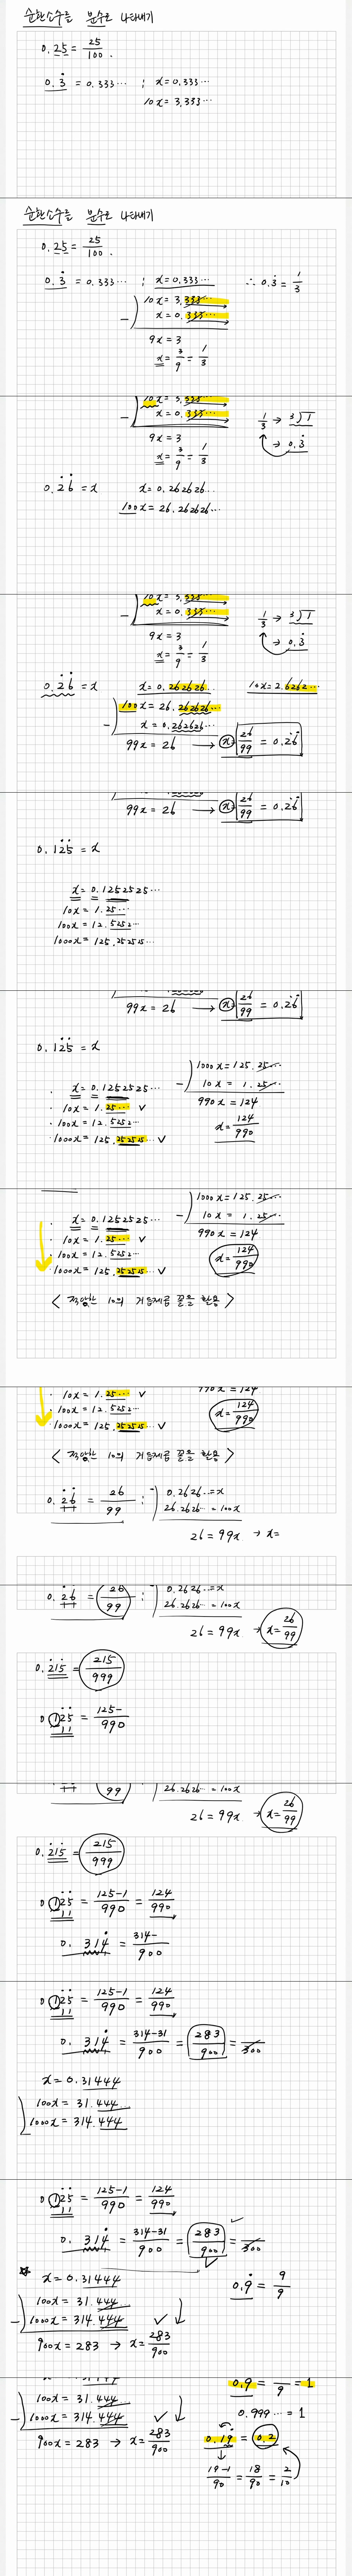 순환소수를 분수로 나타내기
0.25 = 25/100 .
0.3̇ = 0.333⋯ ; x=0.333⋯
10x = 3.333⋯
순환소수를 분수로 나타내기
0.25 = 25/100 .
0.3̇ = 0.333⋯ ; x=0.333⋯ ∴ 0.3̇ = 1/3
10x = 3.333⋯
− ) x = 0.333⋯
9x = 3
x = 3/9 = 1/3
10x = 3.333⋯
− ) x = 0.333⋯ 1/3 → 3)1
9x = 3 → 0.3̇
x = 3/9 = 1/3
0.2̇6̇ = x x = 0.262626⋯
100x = 26.262626⋯
10x = 3.333⋯
− ) x = 0.333⋯ 1/3 → 3)1
9x = 3 → 0.3̇
x = 3/9 = 1/3
0.2̇6̇ = x x = 0.262626⋯ 10x = 2.6262⋯
100x = 26.262626⋯
− ) x = 0.262626⋯
99x = 26 → x = 26/99 = 0.2̇6̇
99x = 26 → x = 26/99 = 0.2̇6̇
0.12̇5̇ = x
x = 0.1252525⋯
10x = 1.25⋯
100x = 12.5252⋯
1000x = 125.252525⋯
99x = 26 → x = 26/99 = 0.2̇6̇
0.12̇5̇ = x
1000x = 125.25⋯
· x = 0.1252525⋯ − ) 10x = 1.25⋯
· 10x = 1.25⋯ ∨ 990x = 124
· 100x = 12.5252⋯ x = 124/990
· 1000x = 125.252525⋯ ∨
1000x = 125.25⋯
· x = 0.1252525⋯ − ) 10x = 1.25⋯
· 10x = 1.25⋯ ∨ 990x = 124
· 100x = 12.5252⋯ x = 124/990
· 1000x = 125.252525⋯ ∨
< 적당한 10의 거듭제곱 꼴을 활용 >
· 10x = 1.25⋯ ∨ 990x = 124
· 100x = 12.5252⋯ x = 124/990
· 1000x = 125.252525⋯ ∨
< 적당한 10의 거듭제곱 꼴을 활용 >
0.2̇6̇ = 26/99 : − ) 0.2626⋯ = x
26.2626⋯ = 100x
26 = 99x → x =
0.2̇6̇ = 26/99 : − ) 0.2626⋯ = x
26.2626⋯ = 100x
26 = 99x → x = 26/99
0.2̇15̇ = 215/999
0.12̇5̇ = 125-/990
99 26.2626⋯ = 100x
26 = 99x → x = 26/99
0.2̇15̇ = 215/999
0.12̇5̇ = 125-1/990 = 124/990
0.314̇ = 314-/900
0.12̇5̇ = 125-1/990 = 124/990
0.314̇ = 314-31/900 = 283/900 = /300
x = 0.31444
100x = 31.444
1000x = 314.444
0.12̇5̇ = 125-1/990 = 124/990
0.314̇ = 314-31/900 = 283/900 = /300
☆ x = 0.31444 0.9̇ = 9/9
100x = 31.444
− ) 1000x = 314.444 ∨
900x = 283 → x = 283/900
0.9̇ = /9 = 1
100x = 31.444
− ) 1000x = 314.444 ∨ 0.999⋯ = 1
900x = 283 → x = 283/900 0.19̇ = 0.2
19-1/90 = 18/90 = 2/10